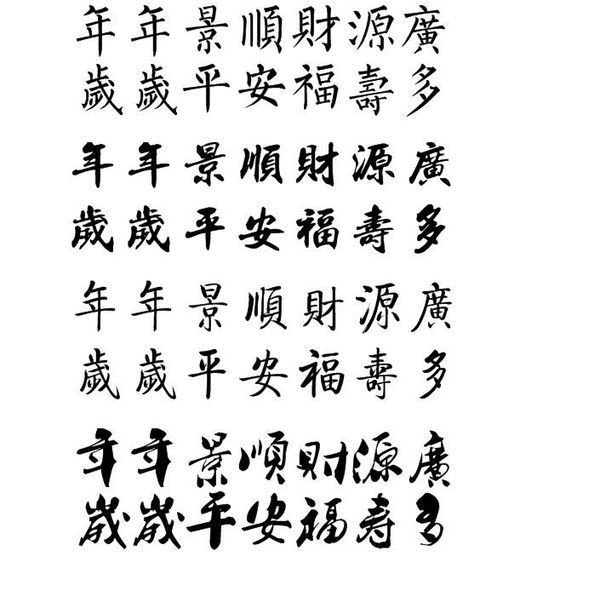 年年景順財源廣
歲歲平安福壽多
年年景順財源廣
歲歲平安福壽多
年年景順財源廣
歲歲平安福壽多
年年景順財源廣
歲歲平安福壽多